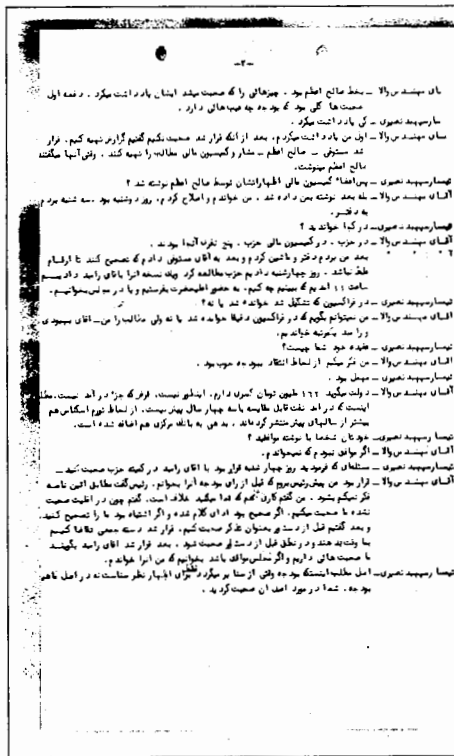 -۳-
آقای مهندس والا – بخط صالح اعظم بود . چیزهائی را که صحبت میشد ایشان یادداشت میکرد . دفعه اول
صحبت ها کلی بود که بودجه چه عیب هائی دارد .
تیمسار سپهبد نصیری – کی یادداشت میکرد .
آقای مهندس والا – اول من یادداشت میکردم . بعد از آنکه قرار شد صحبت بکنیم گفتیم گزارش تهیه کنیم . قرار
شد مستوفی – صالح اعظم – مشار و کمیسیون مالی مطالب را تهیه کنند . وقتی آنها میگفتند
صالح اعظم مینوشت.
تیمسار سپهبد نصیری – پس اعضاء کمیسیون مالی اظهاراتشان توسط صالح اعظم نوشته شد ؟
آقای مهندس والا – بله بعد نوشته بمن داده شد . من خواندم و اصلاح کردم . روز دوشنبه بود . سه شنبه بردم
به دفتر.
تیمسار سپهبد نصیری – در کجا خواندید ؟
آقای مهندس والا – در حزب . در کمیسیون مالی حزب . پنج نفری آنجا بودند .
بعد من بردم دفتر و ماشین کردم و بعد به آقای مستوفی دادم که تصحیح کنند تا ارقام
غلط نباشد . روز چهارشنبه دادیم حزب مطالعه کرد ویک نسخه آنرا بآقای رامبد دادیم
ساعت ۱۱ آمدیم که ببینیم چه کنیم . به حضور اعلیحضرت بفرستیم و یا در مجلس بخوانیم.
تیمسار سپهبد نصیری – در فراکسیون که تشکیل شد خوانده شد یا نه؟
آقای مهندس والا – من نمیتوانم بگویم که در فراکسیون دقیقا خوانده شد یا نه ولی مطالب را من – آقای بهبودی
و رامبد بمرتبه خواندیم.
تیمسار سپهبد نصیری – عقیده خود شما چیست؟
آقای مهندس والا – من فکر میکنم از لحاظ انتقاد ببودجه خوب بود .
تیمسار سپهبد نصیری – مجمل بود .
آقای مهندس والا – دولت میگوید ۱۶۲ ملیون تومان کسری دارم . اینطور نیست. قرض که جزء درآمد نیست.
اینست که درآمد نفت قابل مقایسه باسه چهار سال پیش نیست. از لحاظ تورم اسکناس هم
بیشتر از سالهای پیش منتشر کرده اند . بدهی به بانک مرکزی هم اضافه شده است.
تیمسار سپهبد نصیری – خودتان شخصا با نوشته موافقید ؟
آقای مهندس والا – اگر موافق نبودم که نمیخواندم.
تیمسار سپهبد نصیری – مسئله ای که فرمودید روز چهار شنبه قرار بود با آقای رامبد در کمیته حزب صحبت کنید –
آقای مهندس والا – قرار بود من پیش رئیس بروم که قبل از رأی بودجه آنرا بخوانم . رئیس گفت مطابق آئین نامه
فکر نمیکنم بشود . من گفتم کاری نکنم که خلاف است. گفتم چون در اقلیت صحبت
نشده ما صحبت میکنیم . اگر صحیح بود ادای کلام شده و اگر اشتباه بود ما را تصحیح کنید.
و بعد گفتیم قبل از دستور بعنوان تذکر صحبت کنیم . قرار شد دسته جمعی تقاضا کنیم
بما وقت بدهند و در نطق قبل از دستور صحبت شود . بعد قرار شد آقای رامبد بگویند
ما صحبت هائی داریم و اگر مجلس موافق باشد بخوانیم که من آنرا خواندم.
تیمسار سپهبد نصیری – اصل مطلب اینستکه بودجه وقتی از سنا برمیگردد برای اظهار نظر سناست نه در اصل ماهیت
بودجه . شما در مورد اصل آن صحبت کردید .